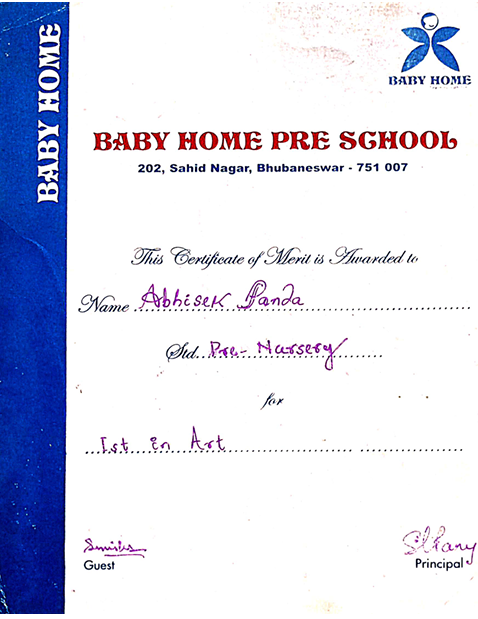 BABY HOME
BABY HOME
BABY HOME PRE SCHOOL
202, Sahid Nagar, Bhubaneswar - 751 007
This Certificate of Merit is Awarded to
Name Abhisek Panda
Std. Pre-Nursery
for
Ist in Art
Guest
Principal